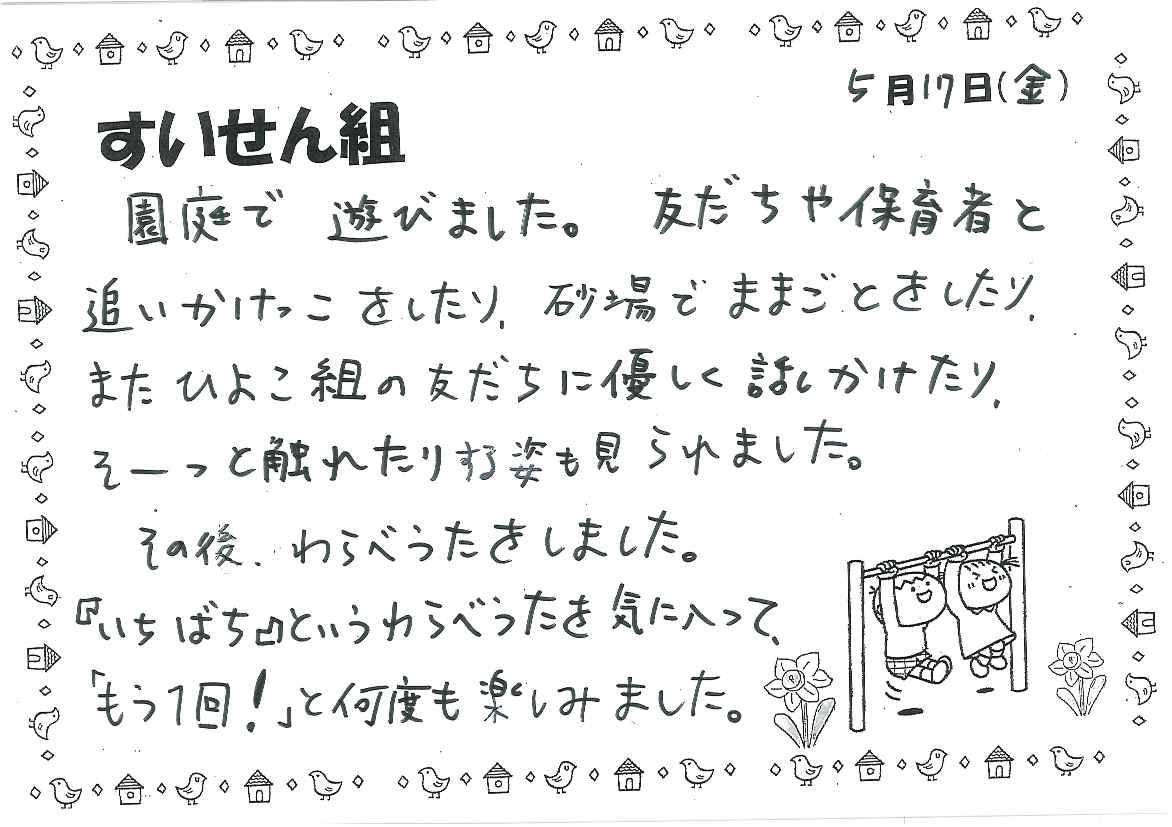 5月17日(金)
すいせん組
園庭で 遊びました。 友だちや保育者と
追いかけっこをしたり、砂場でままごとをしたり、
またひよこ組の友だちに優しく話しかけたり、
そーっと触れたりする姿も見られました。
その後、わらべうたをしました。
『いちばち』というわらべうたを気に入って、
「もう1回!」と何度も楽しみました。